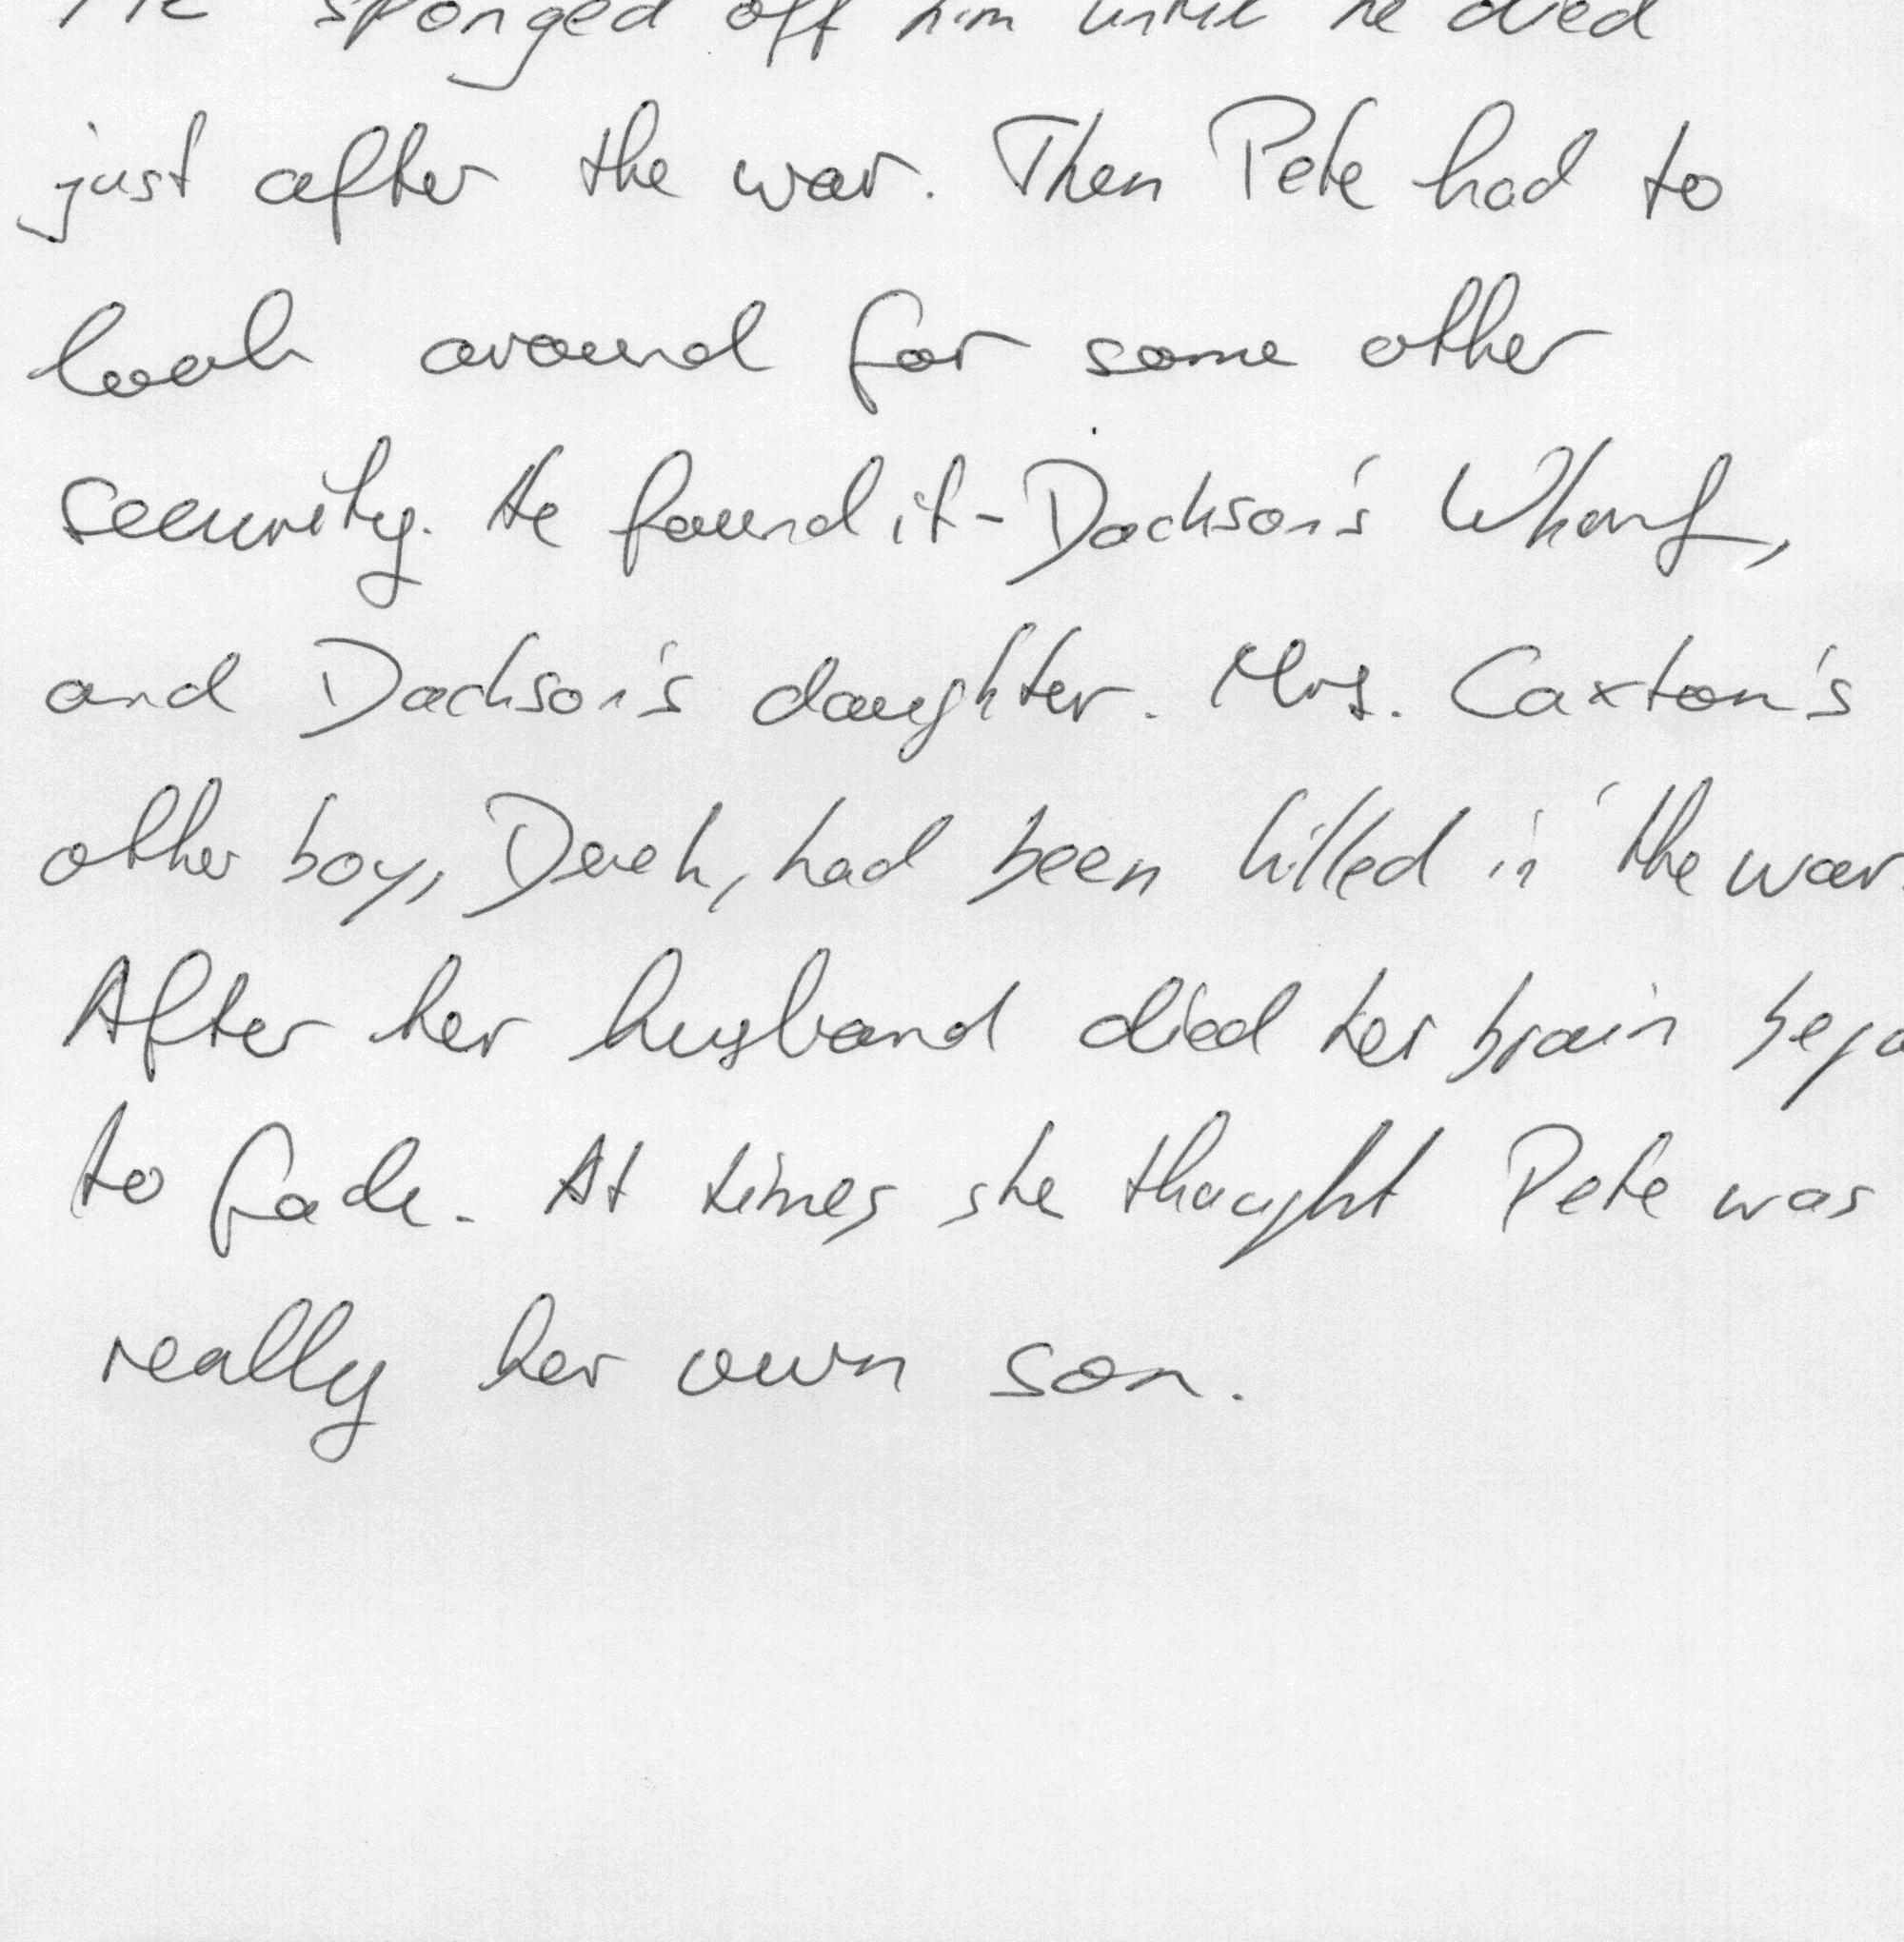 He sponged off him until he died
just after the war. Then Pete had to
look around for some other
security. He found it - Dackson's Wharf,
and Dackson's daughter. Mrs. Caxton's
other boy, Derek, had been killed in the war.
After her husband died her brain bega
to fade. At times she thought Pete was
really her own son.